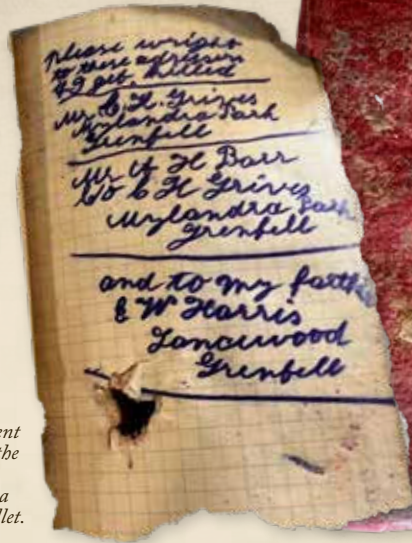 Please wright
to these adresses
if I get killed
Mr. C. H. Grives
Mylandra Park
Grenfell
Mr A H Barr
C/o C H Grives
Mylandra Park
Grenfell
and to my farther
E W Harris
Lancewood
Grenfell
ent
the
a
let.